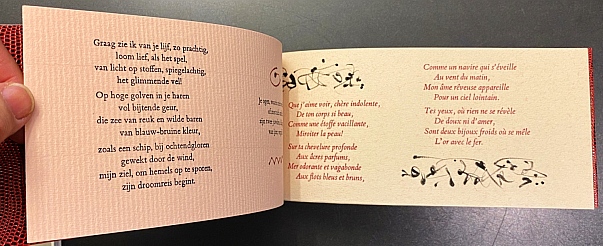 Graag zie ik van je lijf, zo prachtig,
loom lief, als het spel,
van licht op stoffen, spiegelachtig,
het glimmende vel!
Op hoge golven in je haren
vol bijtende geur,
die zee van reuk en wilde baren
van blauw-bruine kleur,
zoals een schip, bij ochtendgloren
gewekt door de wind,
mijn ziel, om hemels op te sporen,
zijn droomreis begint.
Que j'aime voir, chère indolente,
De ton corps si beau,
Comme une étoffe vacillante,
Miroiter la peau!
Sur ta chevelure profonde
Aux âcres parfums,
Mer odorante et vagabonde
Aux flots bleus et bruns,
Comme un navire qui s'éveille
Au vent du matin,
Mon âme rêveuse appareille
Pour un ciel lointain.
Tes yeux, où rien ne se révèle
De doux ni d'amer,
Sont deux bijoux froids où se mêle
L'or avec le fer.